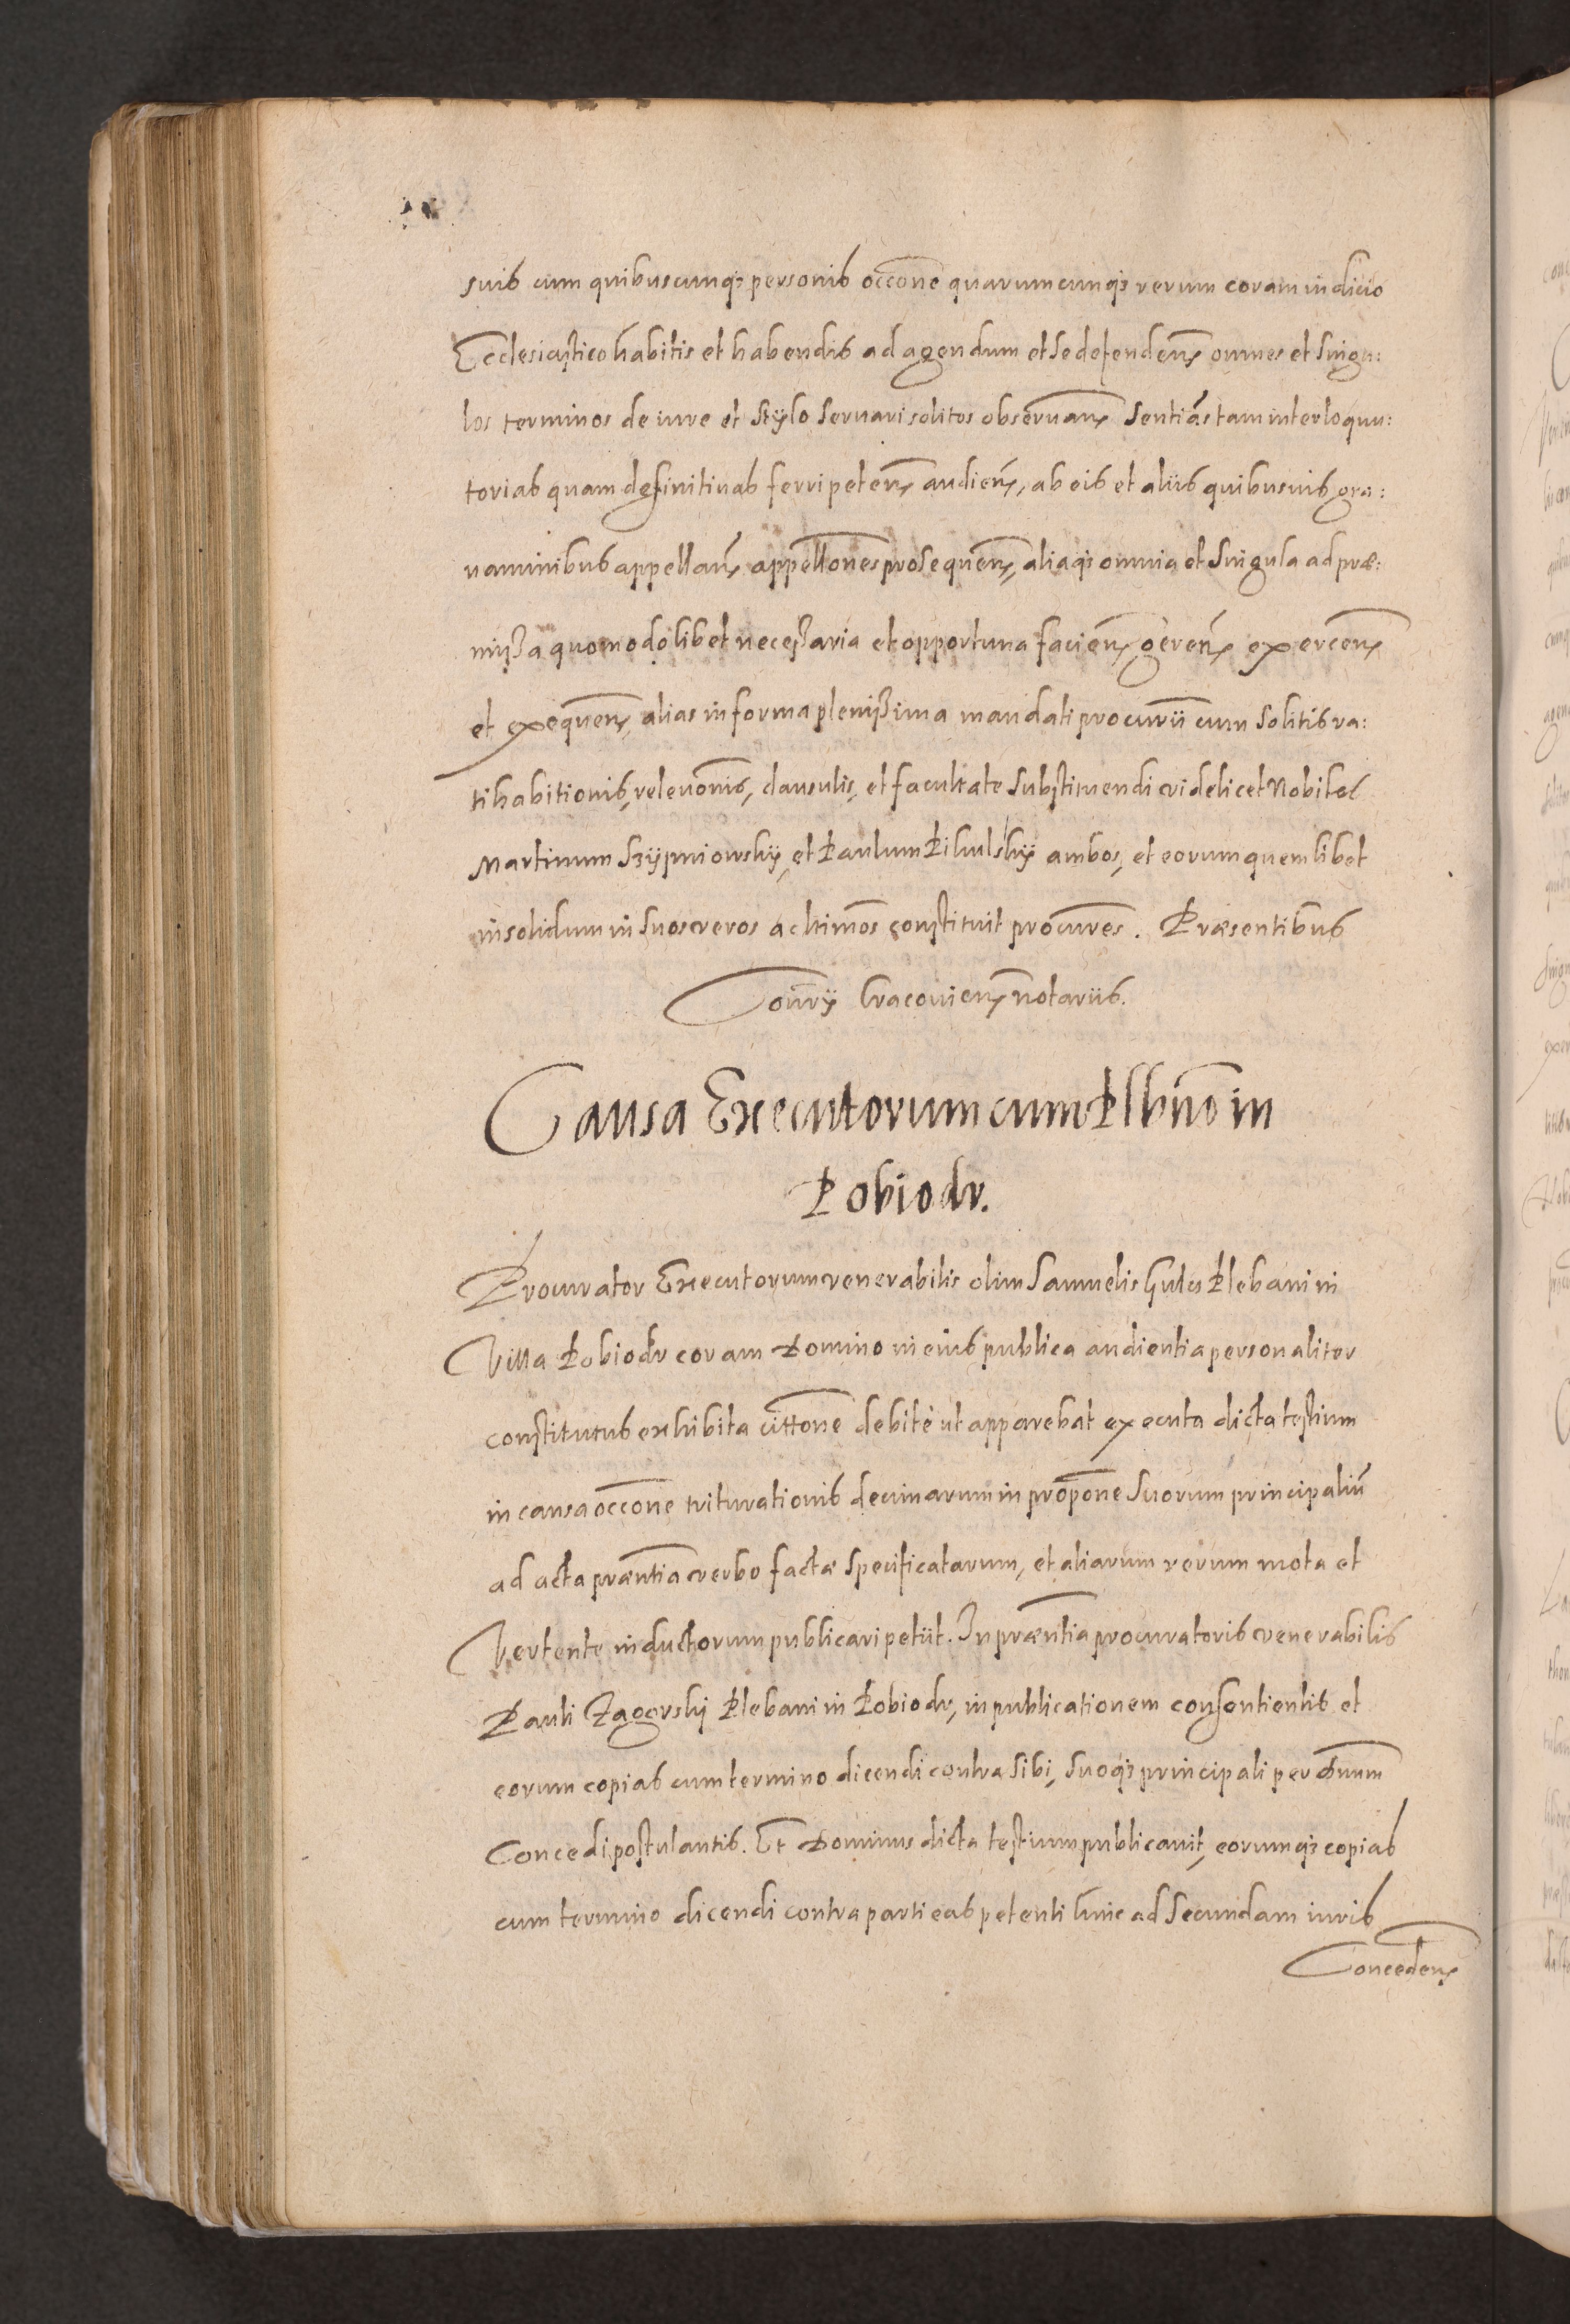 suis cum quibuscunq3 personis occone quarumcunq3 rerum coram iudicio
Ecclesiastico habitis et habendis ad agendum et se defendens omnes et Singu:
los terminos de iure et Stÿlo Servari solitos obseruans Sentiãs tam interloquu:
torias quam definitiuas ferri petens audiens, ab eis et aliis quibusuis gra:
uaminibus appellans appellones prosequens, aliaq3 omnia et Singula ad præ:
missa quomodolibet necessaria et opportuna faciens gerens exercens
et exequens, alias in forma plenissima mandati procurii cum Solitis ra:
tihabitionis, releuonis, clausulis, et facultate Substituendi videlicet Nobiles
Martinum Szÿpniowskÿ, et Paulum Pikulskÿ ambos, et eorum quemlibet
in solidum in Suos veros ac ltimos constituit procures. Præsentibus
Conrÿ Cracouiens notariis.
Causa Executorum cum Plbno in
Pobiedr.
Procurator Executorum venerabilis olim Samuelis Plebani in
Villa Pobiedr coram Domino in eius publica audientia personaliter
constitutus exhibita cittone debitè ut apparebat executa dicta testium
in causa occone triturationis decimarum in propone Suorum principaliũ
ad acta præntia verbo factæ Specificatarum, et aliarum rerum mota et
Vertente inductorum publicari petiit. In præntia procuratoris venerabilis
Pauli Zagorski Plebani in Pobiedr, in publicationem consentientis et
eorum copias cum termino dicendi contra Sibi, Suoq3 principali per dnum
Concedi postulantis. Et Dominus dicta testium publicauit, eorumq3 copias
cum termino dicendi contra parti eas petenti hinc ad Secundam iuris
Concedens